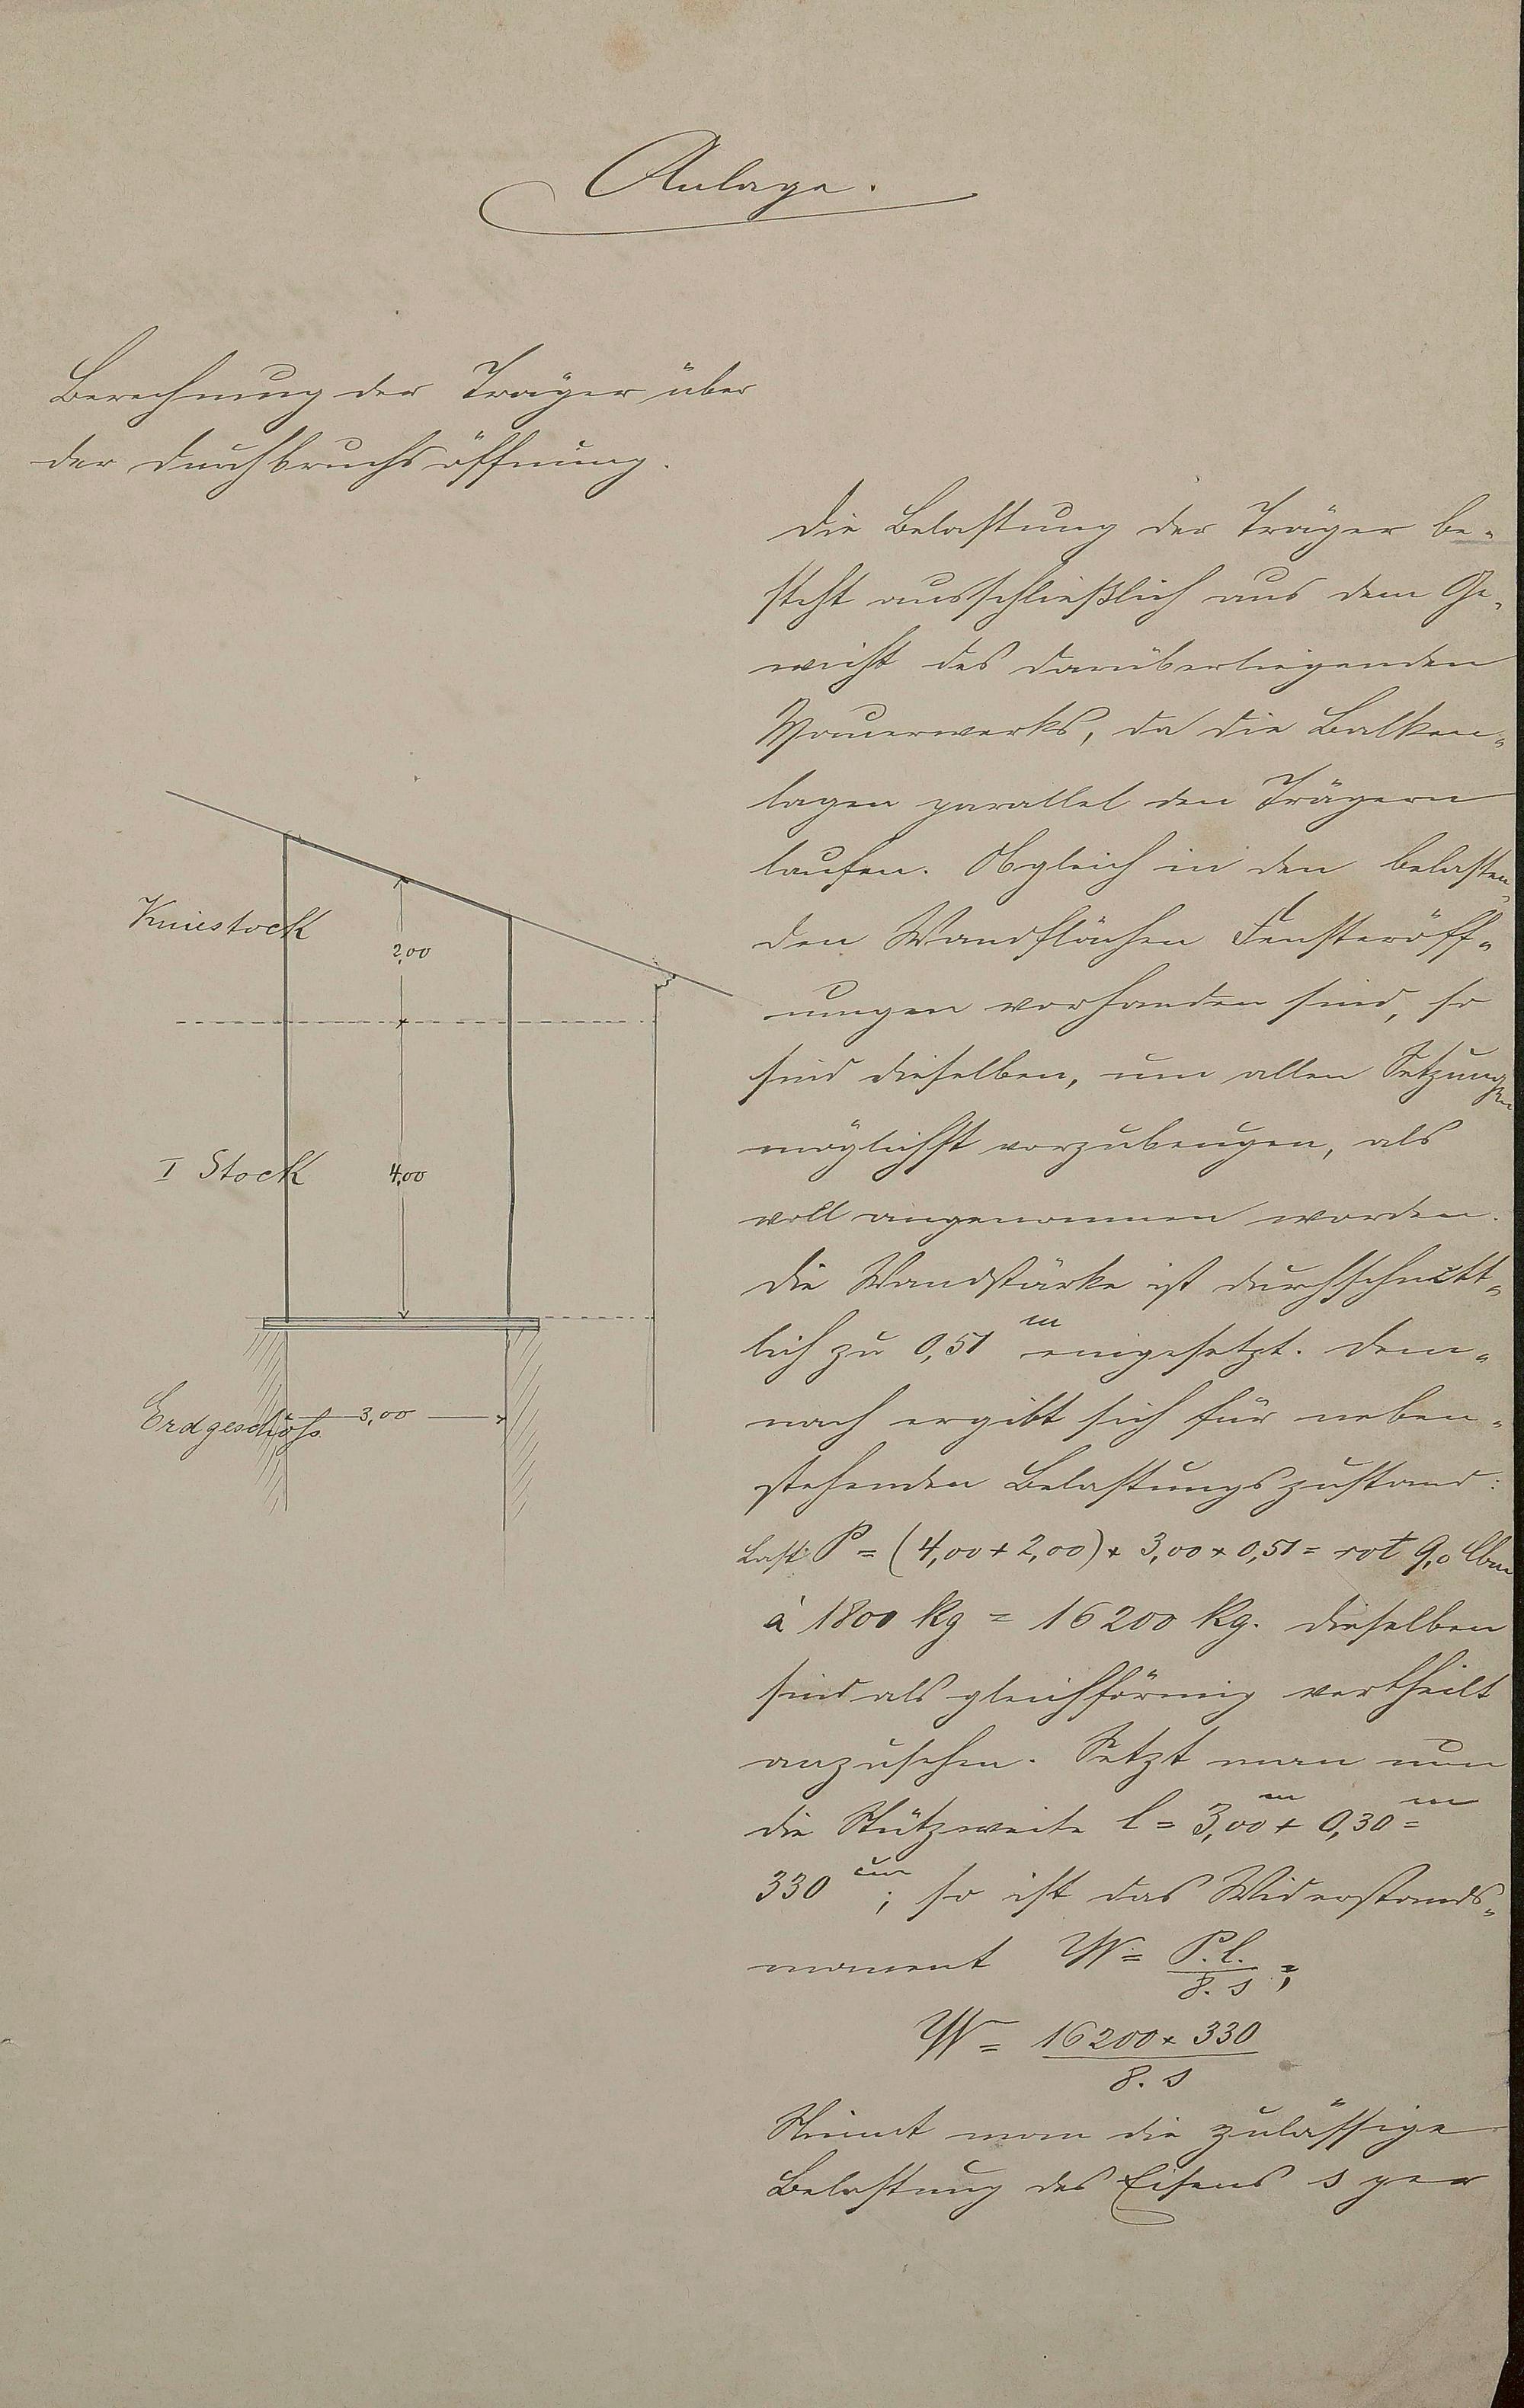 Anlage.
Berechnung der Träger über
der Durchbruchsöffnung.
Die Belastung der Träger be-
steht ausschließlich aus dem Ge-
wicht des darüberliegenden
Mauerwerks, da die Balken-
lagen parallel den Trägern
laufen. Obgleich in den belasten-
den Wandflächen Fensteröff-
nungen vorhanden sind, so
sind dieselben, um allen Setzungen
möglichst vorzubeugen, als
voll angenommen worden.
Die Wandstärke ist durchschnitt-
lich zu 0,51 m eingesetzt. Dem-
nach ergibt sich für neben-
stehenden Belastungszustand:
Last P = (4,00 + 2,00) × 3,00 × 0,51 = rot 9,0 cbm
à 1800 kg = 16200 kg. Dieselben
sind als gleichförmig vertheilt
anzusehen. Setzt man nun
die Stützweite l = 3,00 m + 0,30 m =
330 cm; so ist das Widerstands-
moment W = P.l. / 8.s;
W = 16200 × 330 / 8.s
Nimmt man die zulässige
Belastung des Eisens s per
Kniestock
2,00
I Stock
4,00
Erdgeschoß
3,00